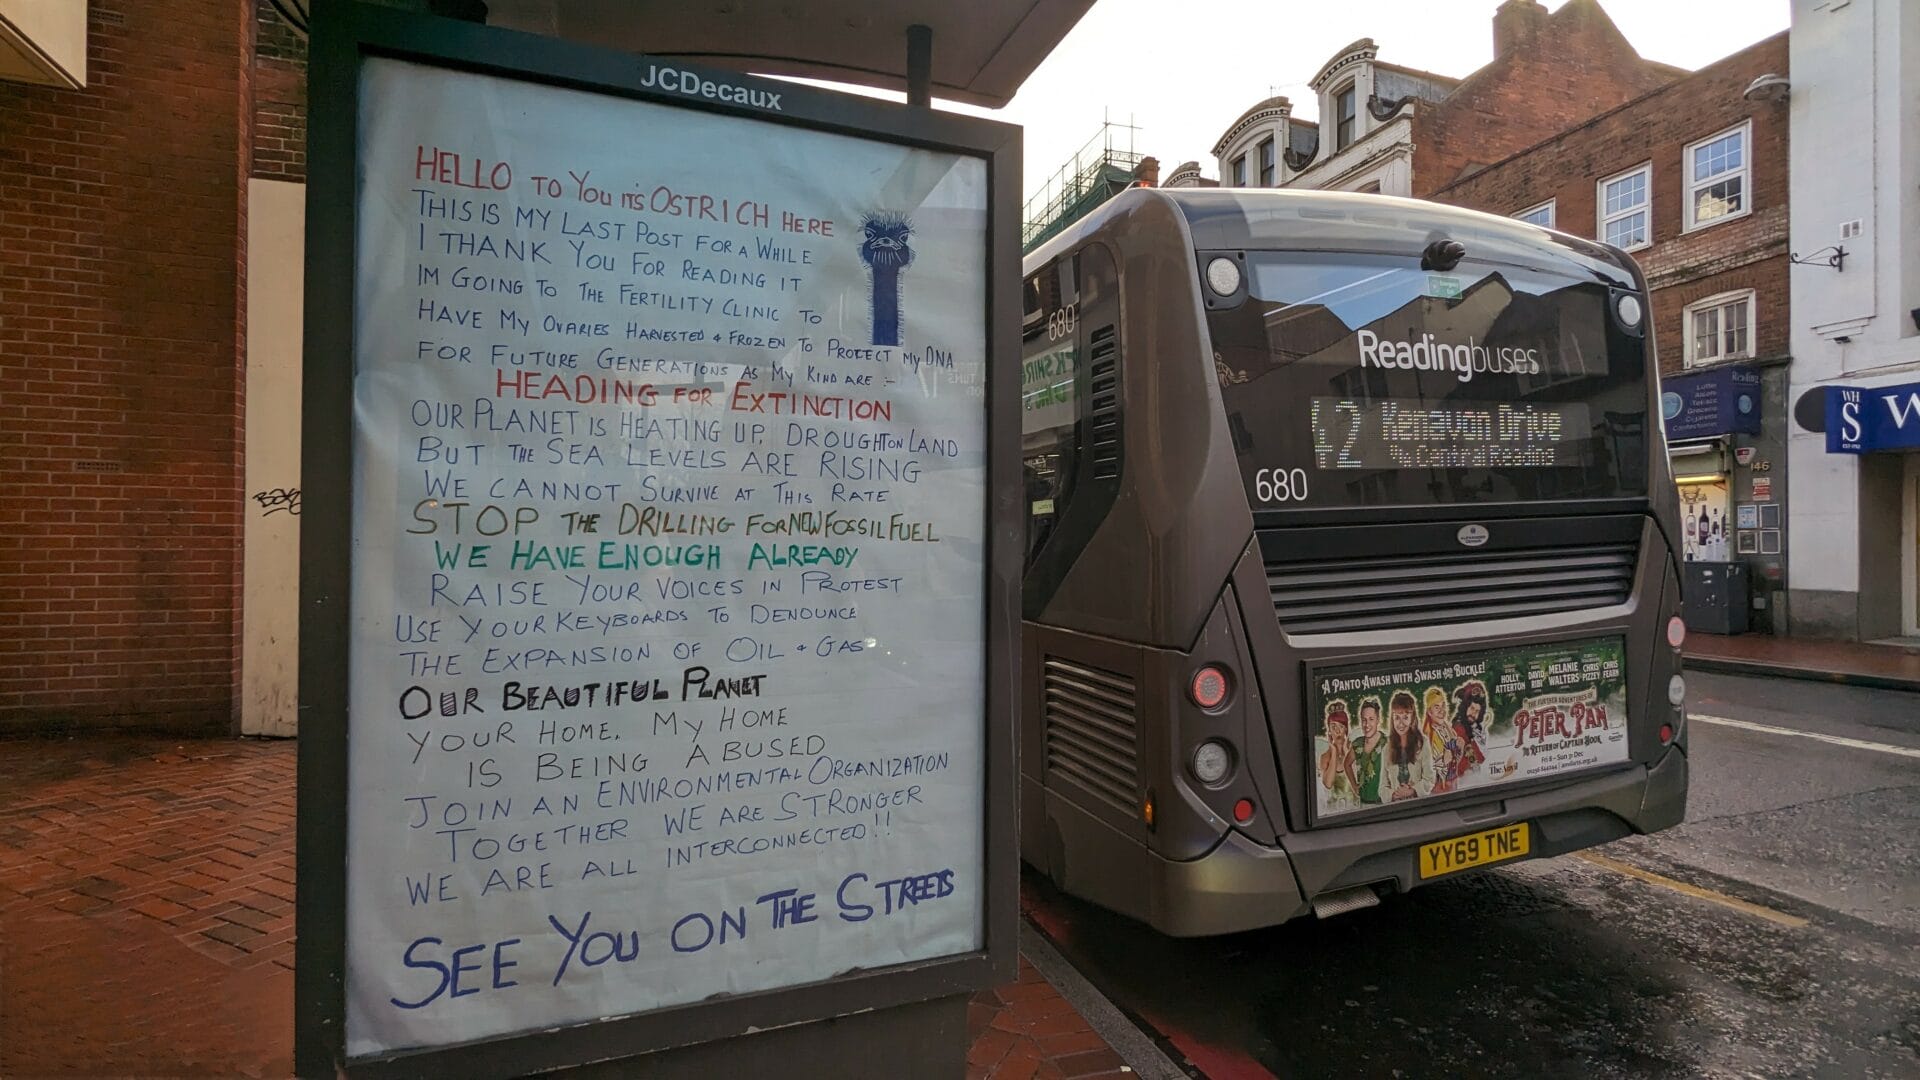 JCDecaux
HELLO TO YOU ITS OSTRICH HERE
THIS IS MY LAST POST FOR A WHILE
I THANK YOU FOR READING IT
IM GOING TO THE FERTILITY CLINIC TO
HAVE MY OVARIES HARVESTED & FROZEN TO PROTECT MY DNA
FOR FUTURE GENERATIONS AS MY KIND ARE :-
HEADING FOR EXTINCTION
OUR PLANET IS HEATING UP, DROUGHT ON LAND
BUT THE SEA LEVELS ARE RISING
WE CANNOT SURVIVE AT THIS RATE
STOP THE DRILLING FOR NEW FOSSIL FUEL
WE HAVE ENOUGH ALREADY
RAISE YOUR VOICES IN PROTEST
USE YOUR KEYBOARDS TO DENOUNCE
THE EXPANSION OF OIL & GAS
OUR BEAUTIFUL PLANET
YOUR HOME, MY HOME
IS BEING ABUSED
JOIN AN ENVIRONMENTAL ORGANIZATION
TOGETHER WE ARE STRONGER
WE ARE ALL INTERCONNECTED!!
SEE YOU ON THE STREETS
680
Readingbuses
42 Kenavon Drive
Central Reading
680
A PANTO AWASH WITH SWASH AND BUCKLE!
HOLLY ATTERTON
DAVID RIBI
MELANIE WALTERS
CHRIS PIZZEY
CHRIS FEARN
THE FURTHER ADVENTURES OF
PETER PAN
THE RETURN OF CAPTAIN HOOK
Fri 8 - Sun 31 Dec
The Anvil
YY69 TNE
Reading
146
WHS
W